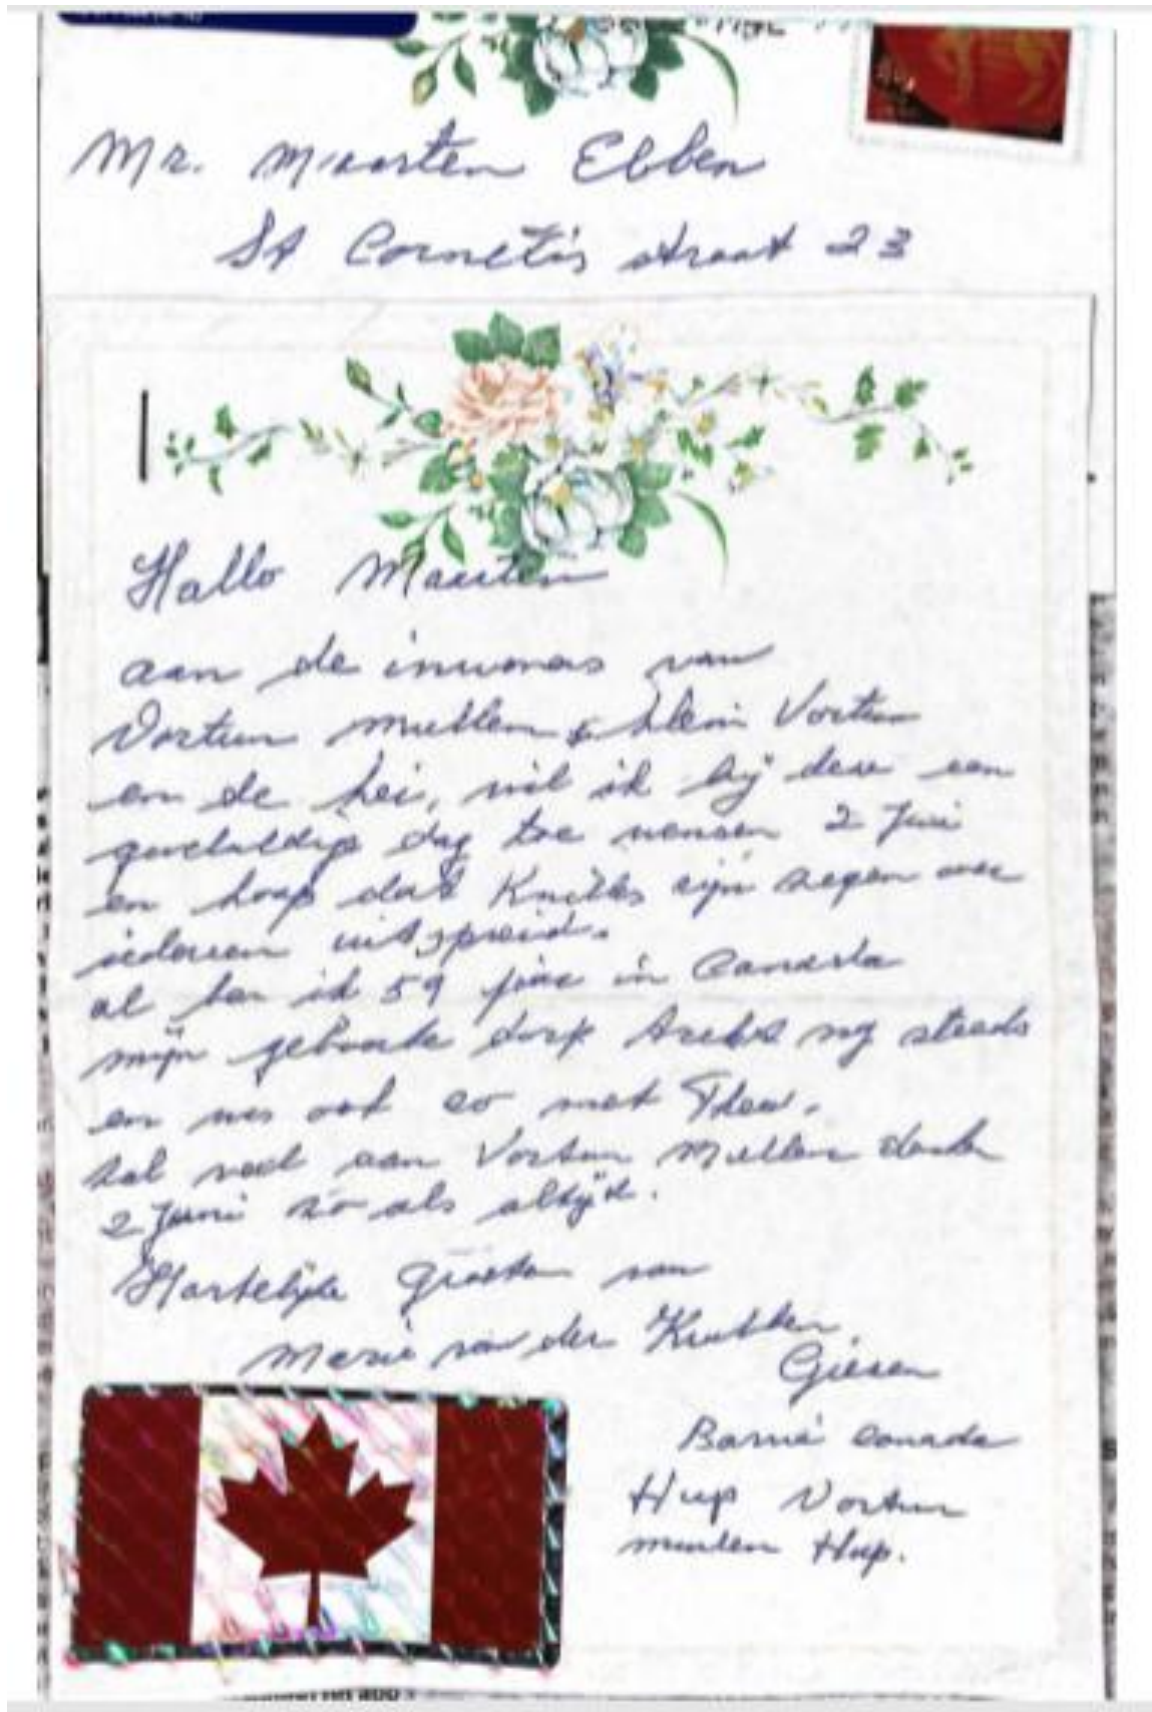 Mr. Maarten Ebben
St Cornelis straat 23
Hallo Maarten
aan de inwoners van
Vortum mullem & klein Vortum
en de hei, wil ik bij deze een
geweldig dag toe wensen 2 Juni
en hoop dat zijn zegen over
iedereen uitspreid.
al ben ik 59 jaar in Canada
mijn geboorte dorp trekt nog steeds
en was ook zo met Theo.
zal veel aan Vortum Mullem denken
2 Juni zo als altijd.
Hartelijke Groeten van
Marie van der
Giesen
Barrie Canada
Hup Vortum
mullem Hup.